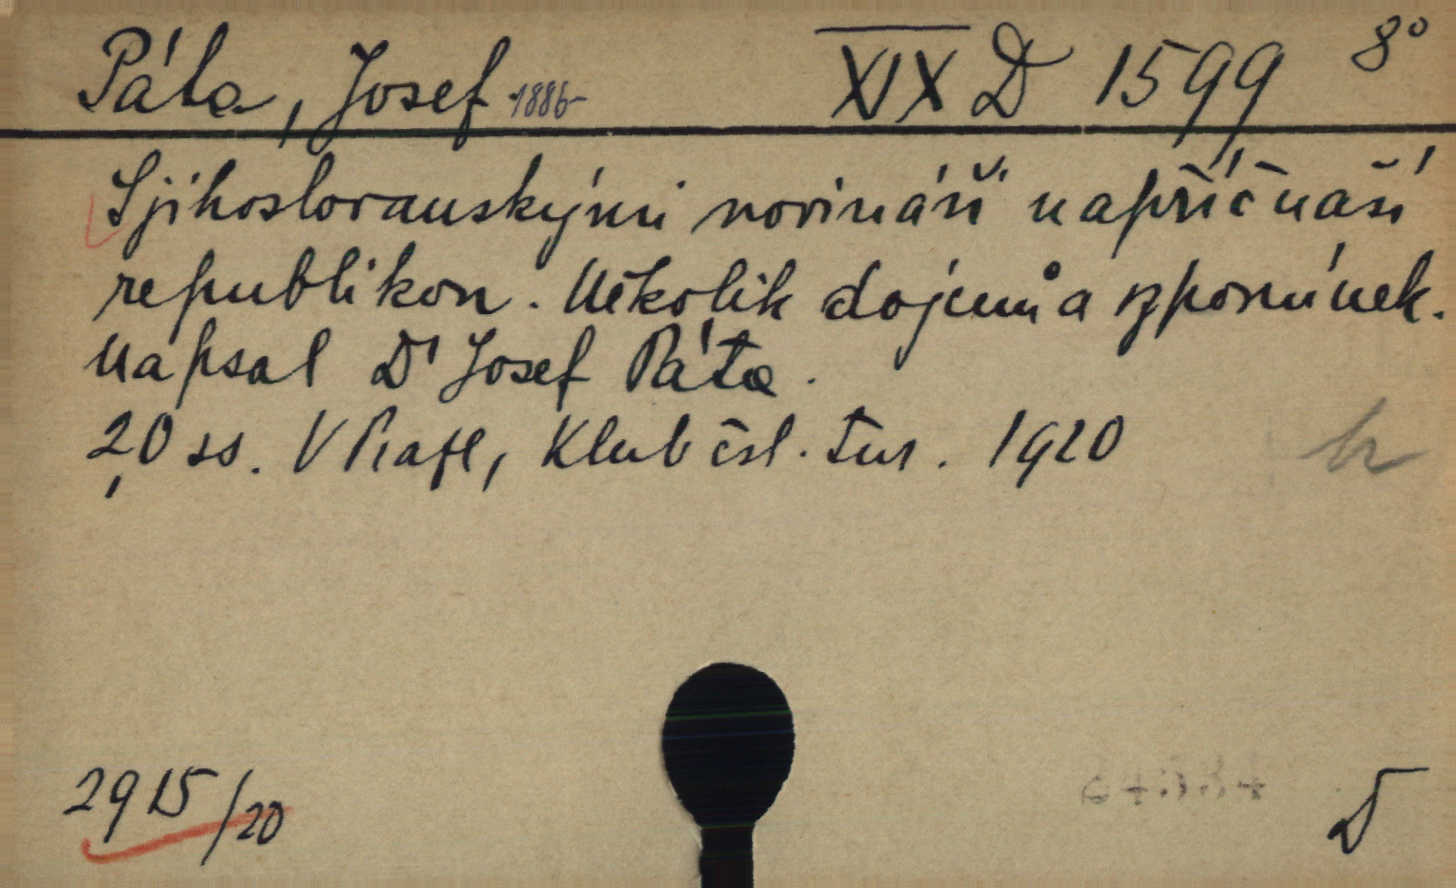 Páta, Josef 1886- XIX D 1599 8°
S jihoslovanskými novináři napříč naší
republikou. Několik dojmů a vzpomínek.
Napsal Dr Josef Páta.
20 ss. V Praze, Klub čsl. tur. 1920
2915/20